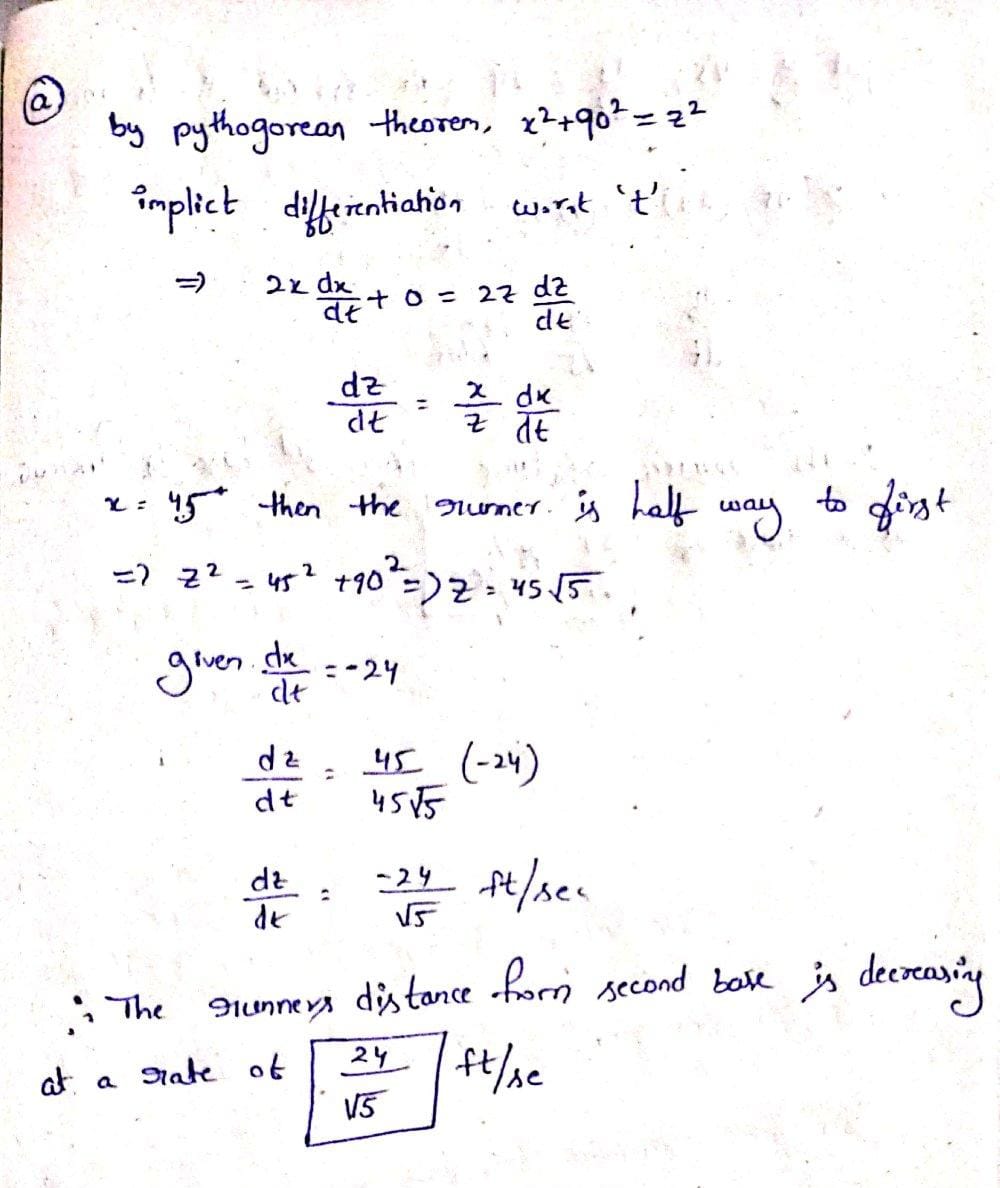 (a)
by pythogorean theorem, x²+90² = z²
implict differentiation w.r.t 't'
⇒ 2x dx/dt + 0 = 2z dz/dt
dz/dt = x/z dx/dt
x = 45 then the runner is half way to first
⇒ z² = 45² +90² ⇒ z = 45√5
given dx/dt = -24
dz/dt = 45/45√5 (-24)
dz/dt = -24/√5 ft/sec
∴ The runners distance from second base is decreasing
at a rate of 24/√5 ft/se